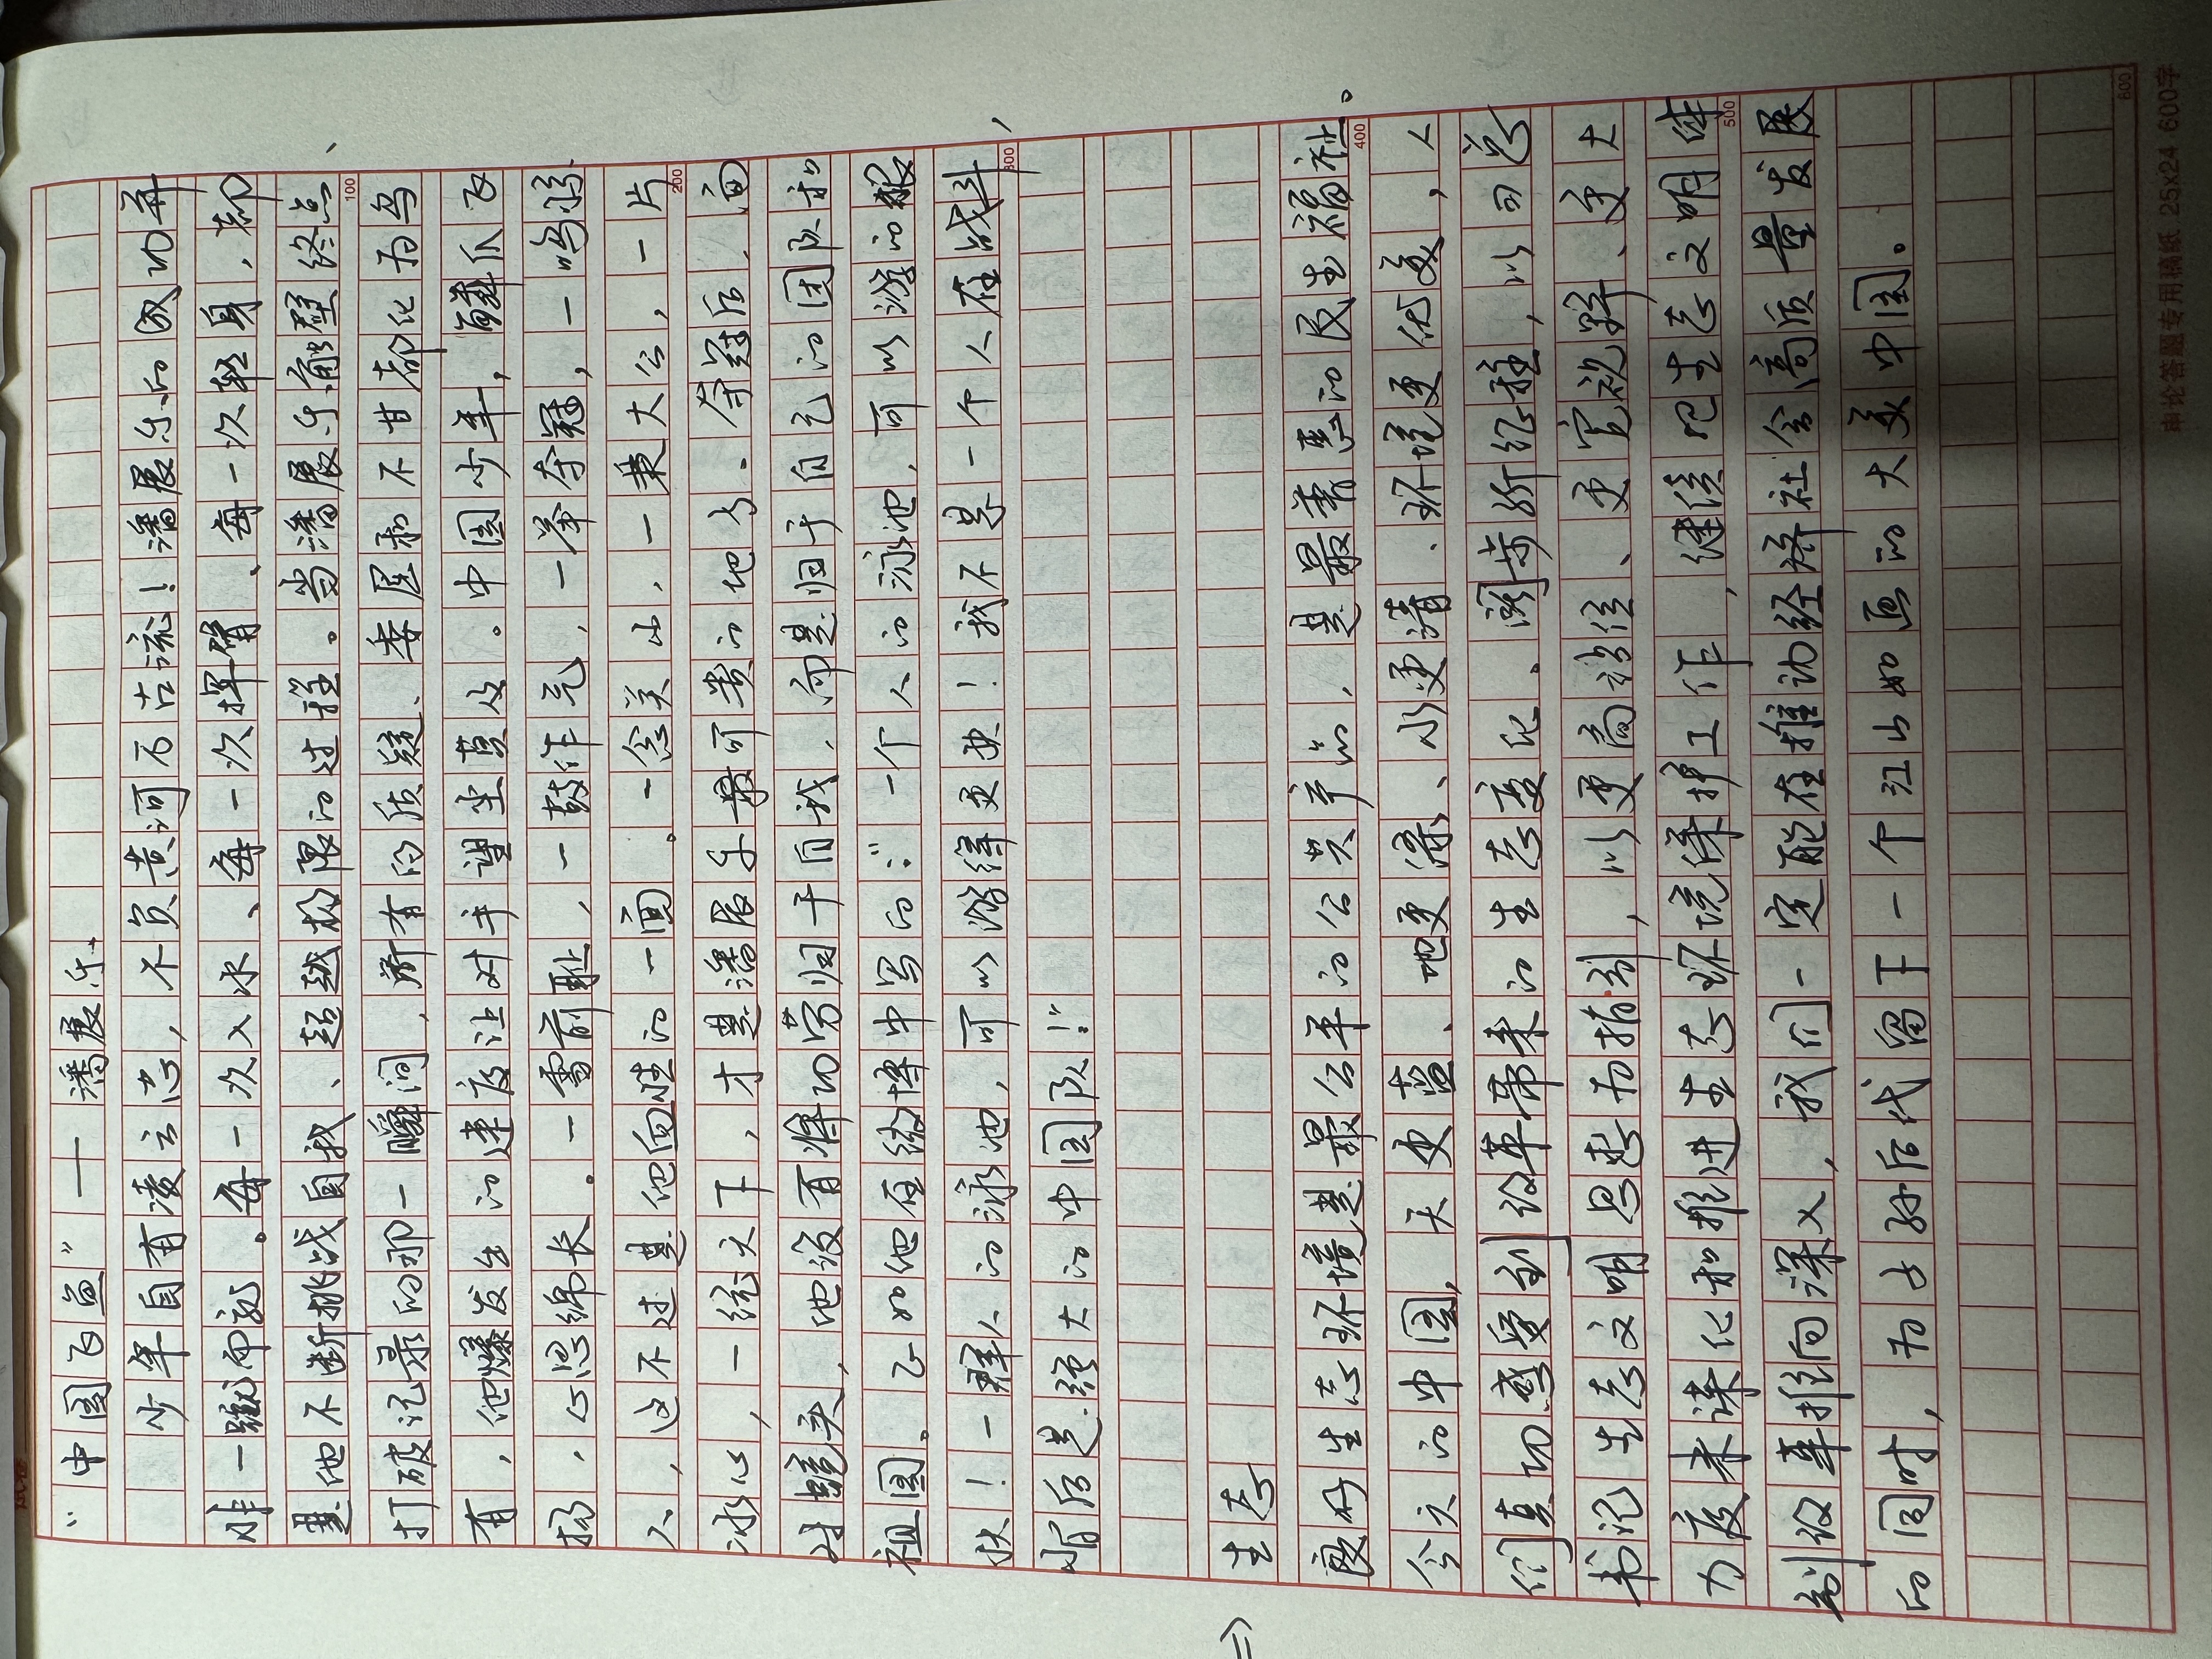 “中国飞鱼”——潘展乐
少年自有凌云志，不负黄河万古流！潘展乐的成功并
非一蹴而就。每一次入水、每一次挥臂、每一次转身，都
是他不断挑战自我、超越极限的过程。当潘展乐触壁终点、
100
打破记录的那一瞬间，所有的质疑、委屈和不甘都化为乌
有，他爆发出的速度让对手望尘莫及。中国少年，鳞爪飞
扬，心思绵长。一雪前耻，一鼓作气，一举夺冠，一鸣惊
人，这不过是他血性的一面。一念关山，一秉大公，一片
200
冰心，一统天下，才是潘展乐最可贵的地方。夺冠后，面
对镜头，他没有将功劳归于自我，而是归于自己的团队和
祖国。正如他在微博中写的：“一个人的泳池，可以游的很
快！一群人的泳池，可以游得更快！我不是一个人在战斗，
300
背后是强大的中国队！”
⇒ 生态
良好生态环境是最公平的公共产品，是最普惠的民生福祉。
400
今天的中国，天更蓝、地更绿、水更清、环境更优美，人
们真切感受到改革带来的生态变化。阔步新征程，以习总
书记生态文明思想为指引，以更高站位、更宽视野、更大
力度来谋化和推进生态环境保护工作，继续把生态文明体
500
制改革推向深入，我们一定能在推动经济社会高质量发展
的同时，为子孙后代留下一个江山如画的大美中国。
600
申论答题专用稿纸 25x24 600字